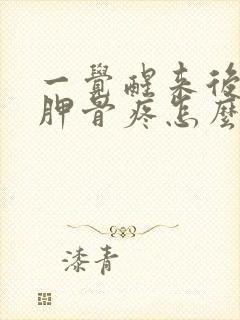 一覺醒來後
胛骨疼怎麼
漆青